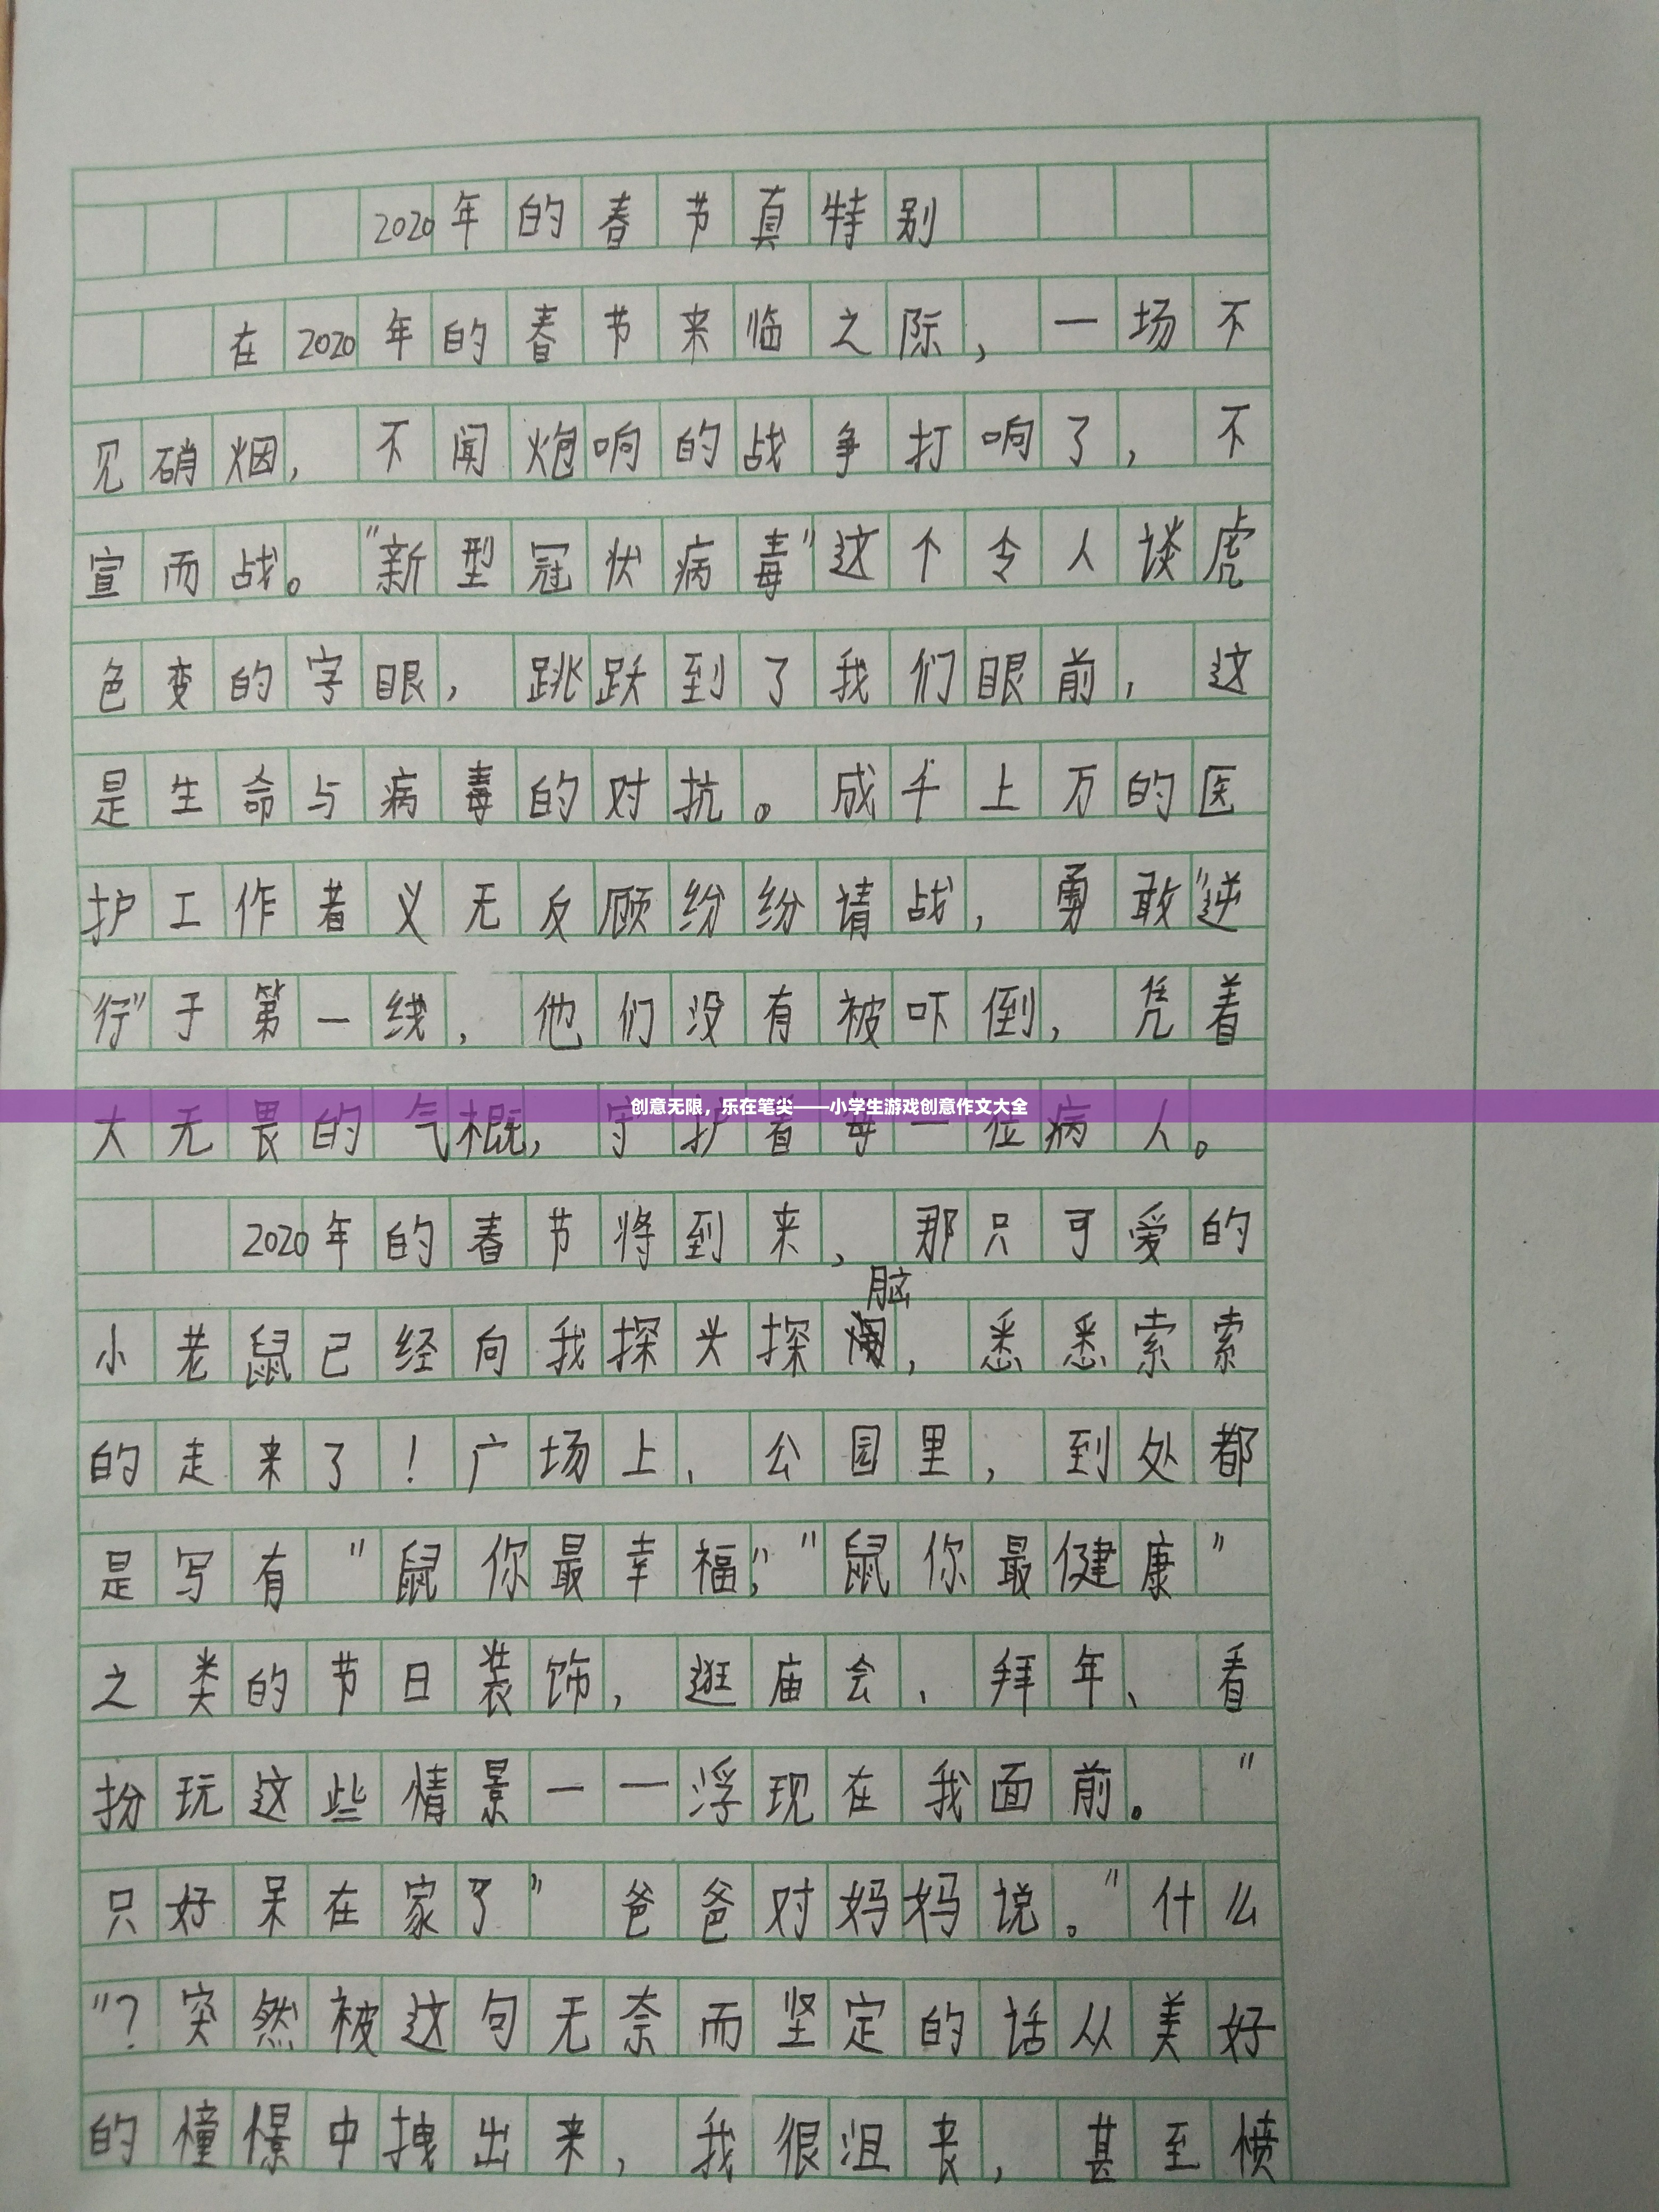 2020年的春节真特别
在2020年的春节来临之际，一场不
见硝烟，不闻炮响的战争打响了，不
宣而战。“新型冠状病毒”这个令人谈虎
色变的字眼，跳跃到了我们眼前，这
是生命与病毒的对抗。成千上万的医
护工作者义无反顾纷纷请战，勇敢“逆
行”于第一线，他们没有被吓倒，凭着
创意无限，乐在笔尖——小学生游戏创意作文大全
大无畏的气概，守护着每一位病人。
2020年的春节将到来，那只可爱的
脑
小老鼠已经向我探头探，悉悉索索
的走来了！广场上、公园里，到处都
是写有“鼠你最幸福”，“鼠你最健康”
之类的节日装饰，逛庙会、拜年、看
扮玩这些情景一一浮现在我面前。“
只好呆在家了”爸爸对妈妈说。“什么
”？突然被这句无奈而坚定的话从美好
的憧憬中拽出来，我很沮丧，甚至愤